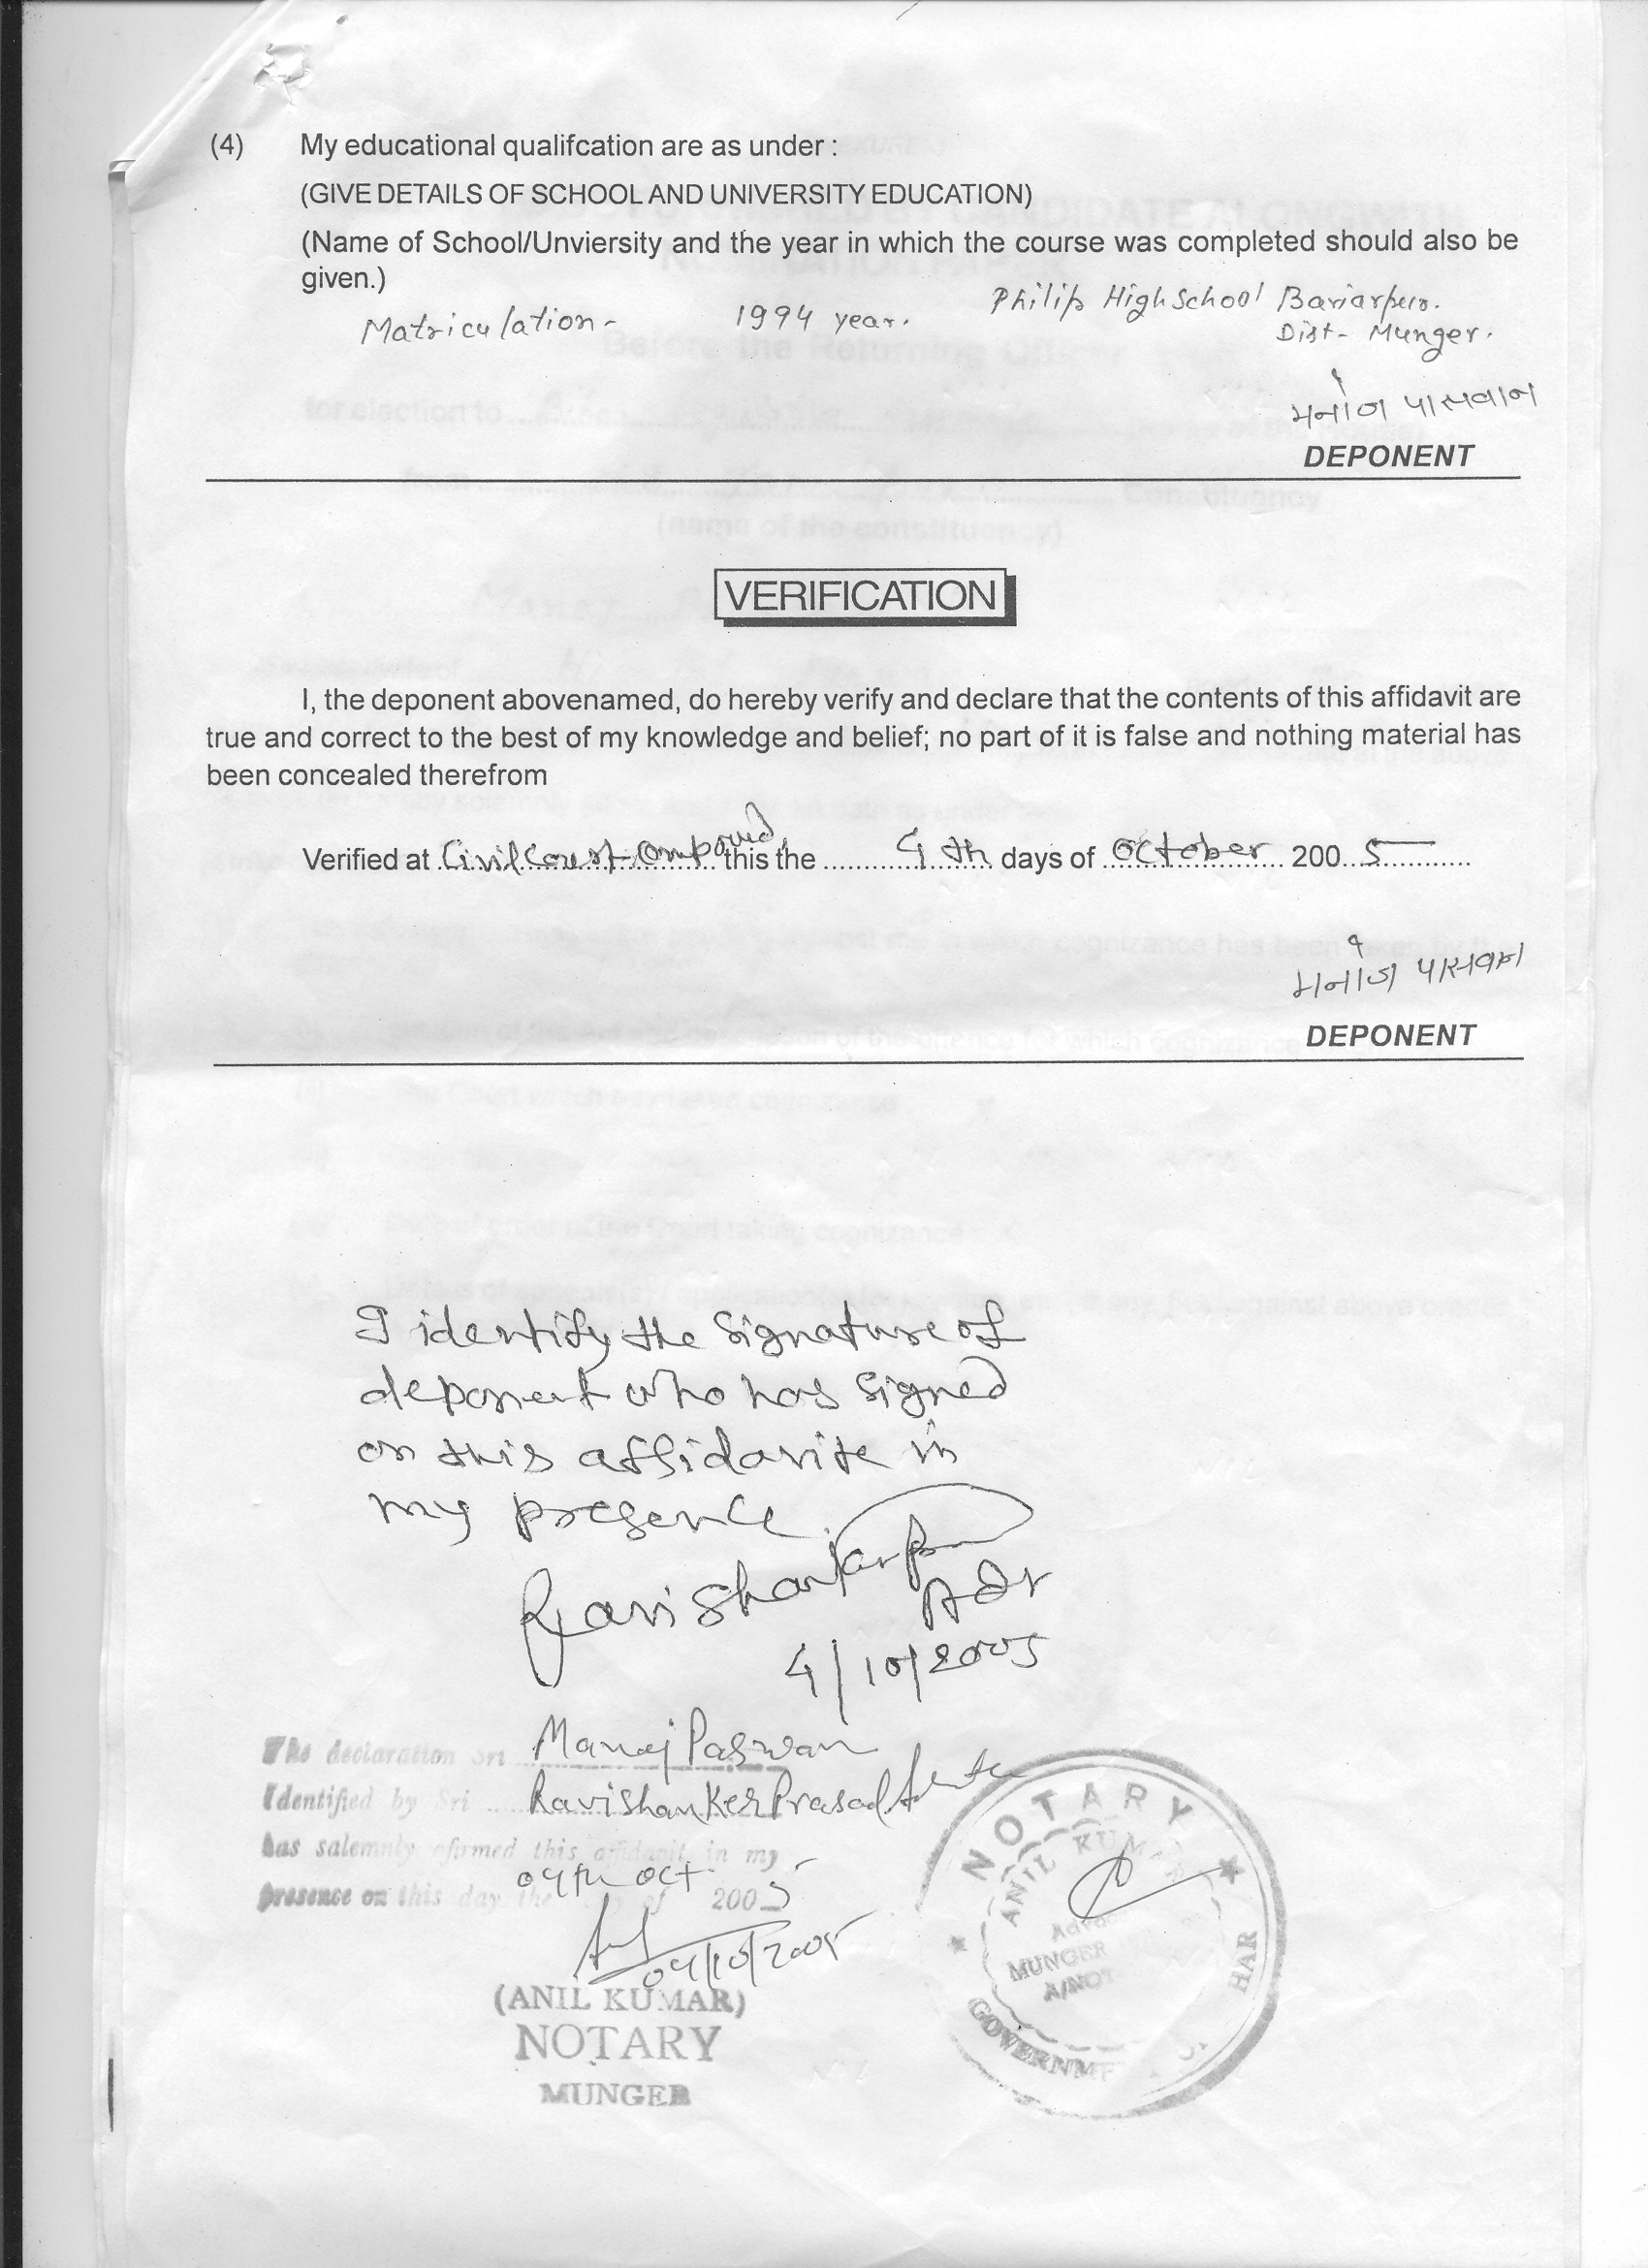 (4) My educational qualifcation are as under :
(GIVE DETAILS OF SCHOOL AND UNIVERSITY EDUCATION)
(Name of School/Unviersity and the year in which the course was completed should also be
given.)
Matriculation - 1994 year. Philip High School Bariarpur.
Dist- Munger.
मनोज पासवान
DEPONENT
VERIFICATION
I, the deponent abovenamed, do hereby verify and declare that the contents of this affidavit are
true and correct to the best of my knowledge and belief; no part of it is false and nothing material has
been concealed therefrom
Verified at Civil Court Compound, this the 4th days of October 2005
मनोज पासवान
DEPONENT
I identify the signature of
deponent who has signed
on this affidavite in
my presence.
Ravishankar Pr
Adv
4/10/2005
The declaration Sri Manoj Paswan
Identified by Sri Ravishanker Prasad
has salemnly afirmed this affidavit in my
04th Oct
presence on this day the of 2005
04/10/2005
(ANIL KUMAR)
NOTARY
MUNGER
NOTARY
ANIL KUMAR
MUNGER